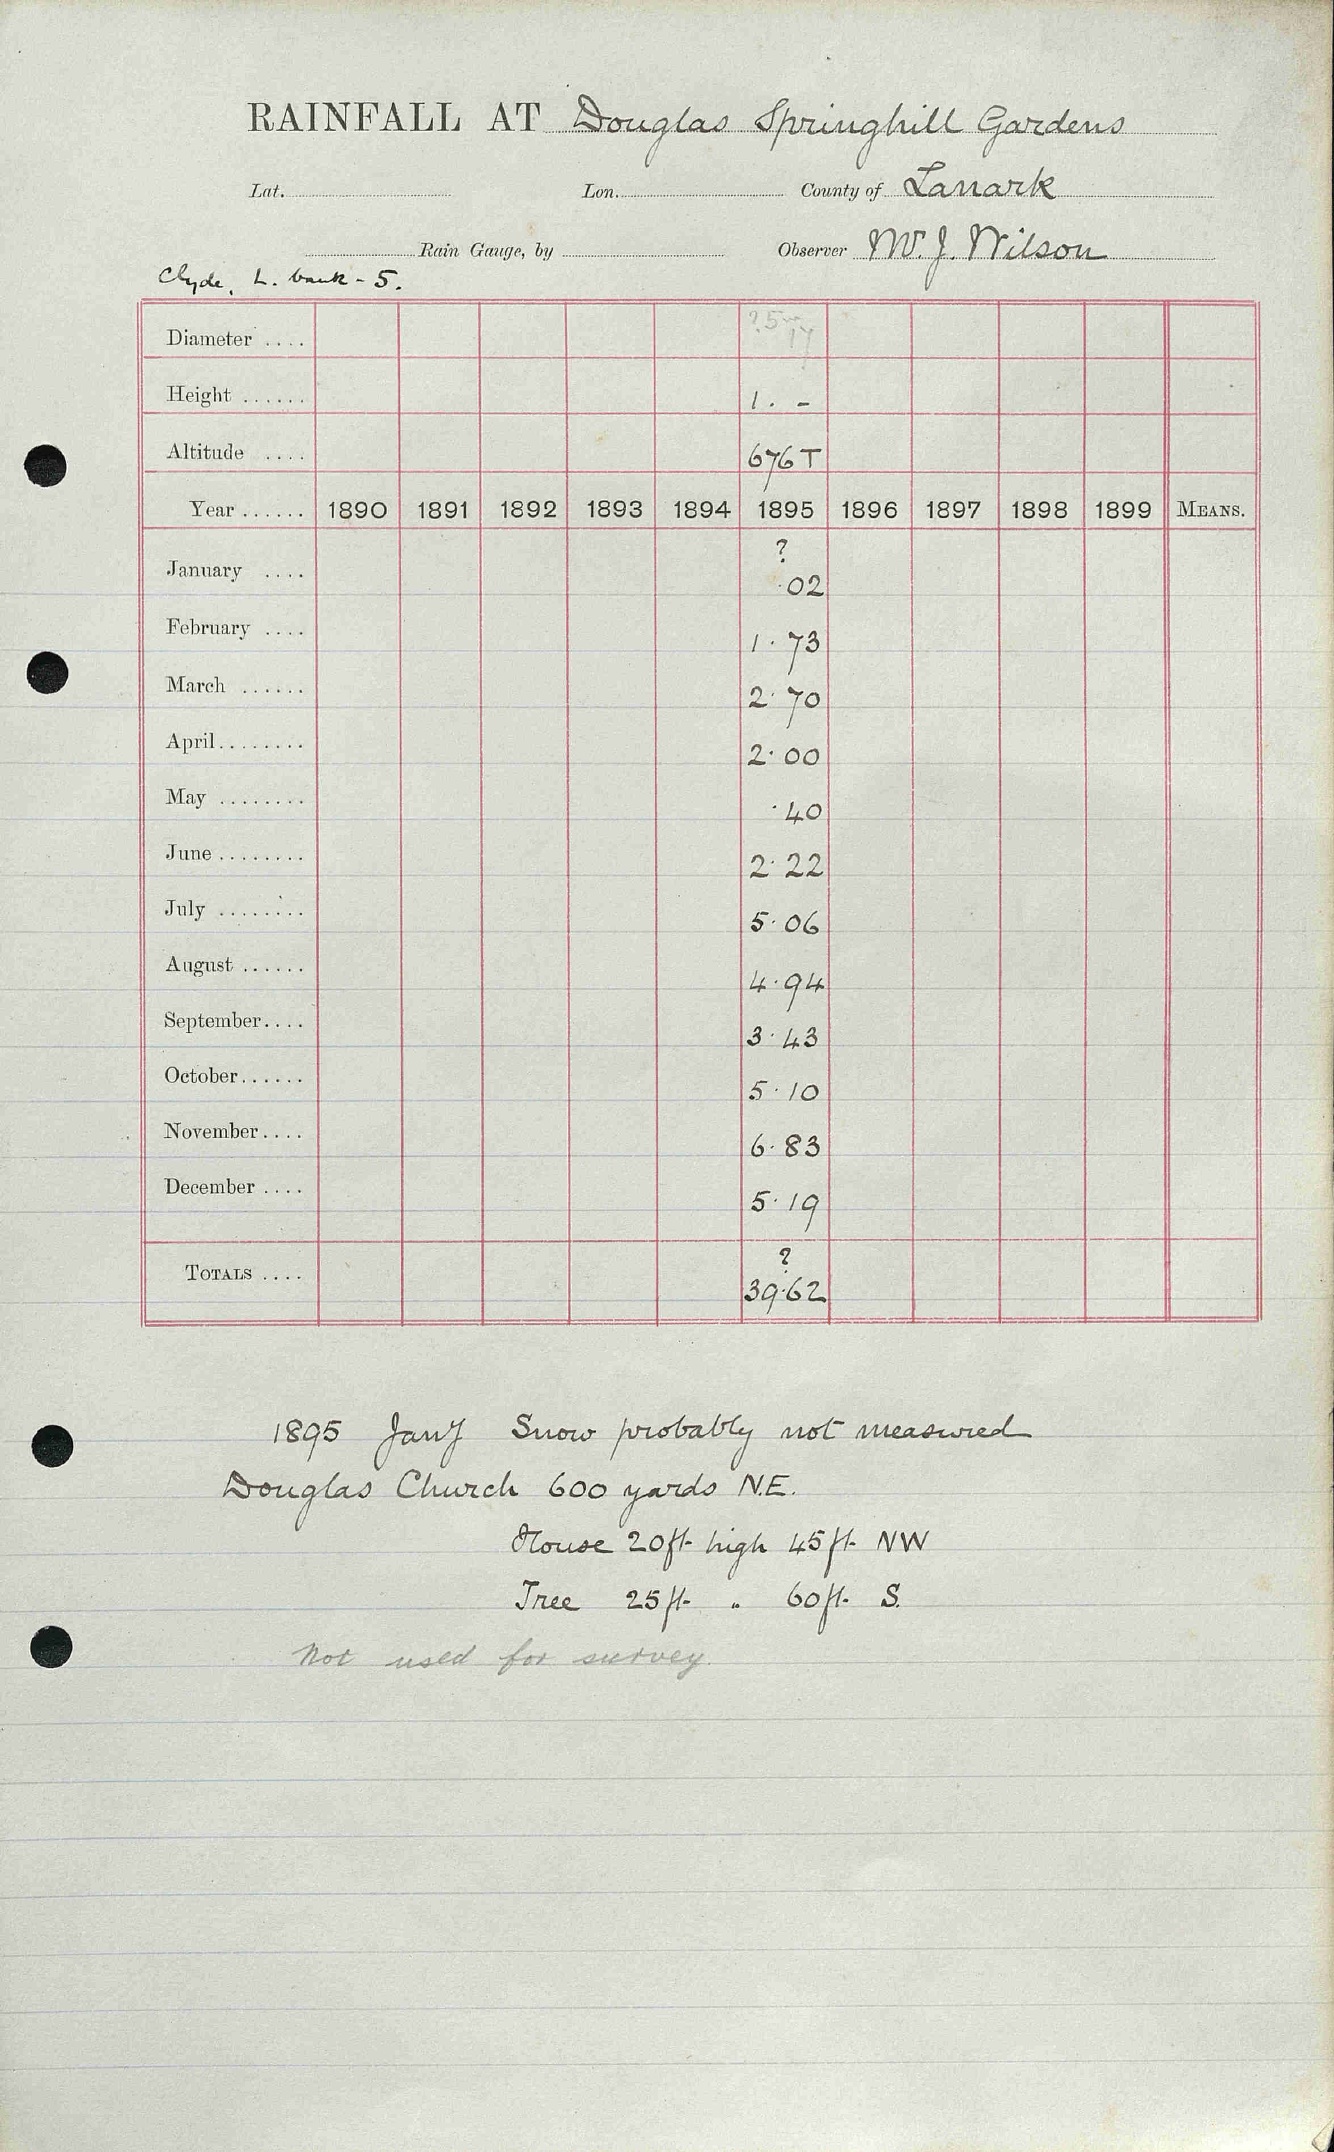 RAINFALL AT Douglas Springhill Gardens
Lat. Lon. County of Lanark
Rain Gauge, by Observer W. J. Wilson
Clyde, L. bank - 5.
Diameter .... ? 5
Height ...... 1. -
Altitude .... 676 T
Year ...... 1890 1891 1892 1893 1894 1895 1896 1897 1898 1899 MEANS.
?
January .... ·02
February .... 1·73
March ...... 2·70
April........ 2·00
May ........ ·40
June ........ 2·22
July ........ 5·06
August ...... 4·94
September.... 3·43
October...... 5·10
November.... 6·83
December .... 5·19
?
TOTALS .... 39·62
1895 Jany Snow probably not measured
Douglas Church 600 yards N.E.
House 20ft. high 45ft. NW
Tree 25ft. " 60ft. S.
Not used for survey.